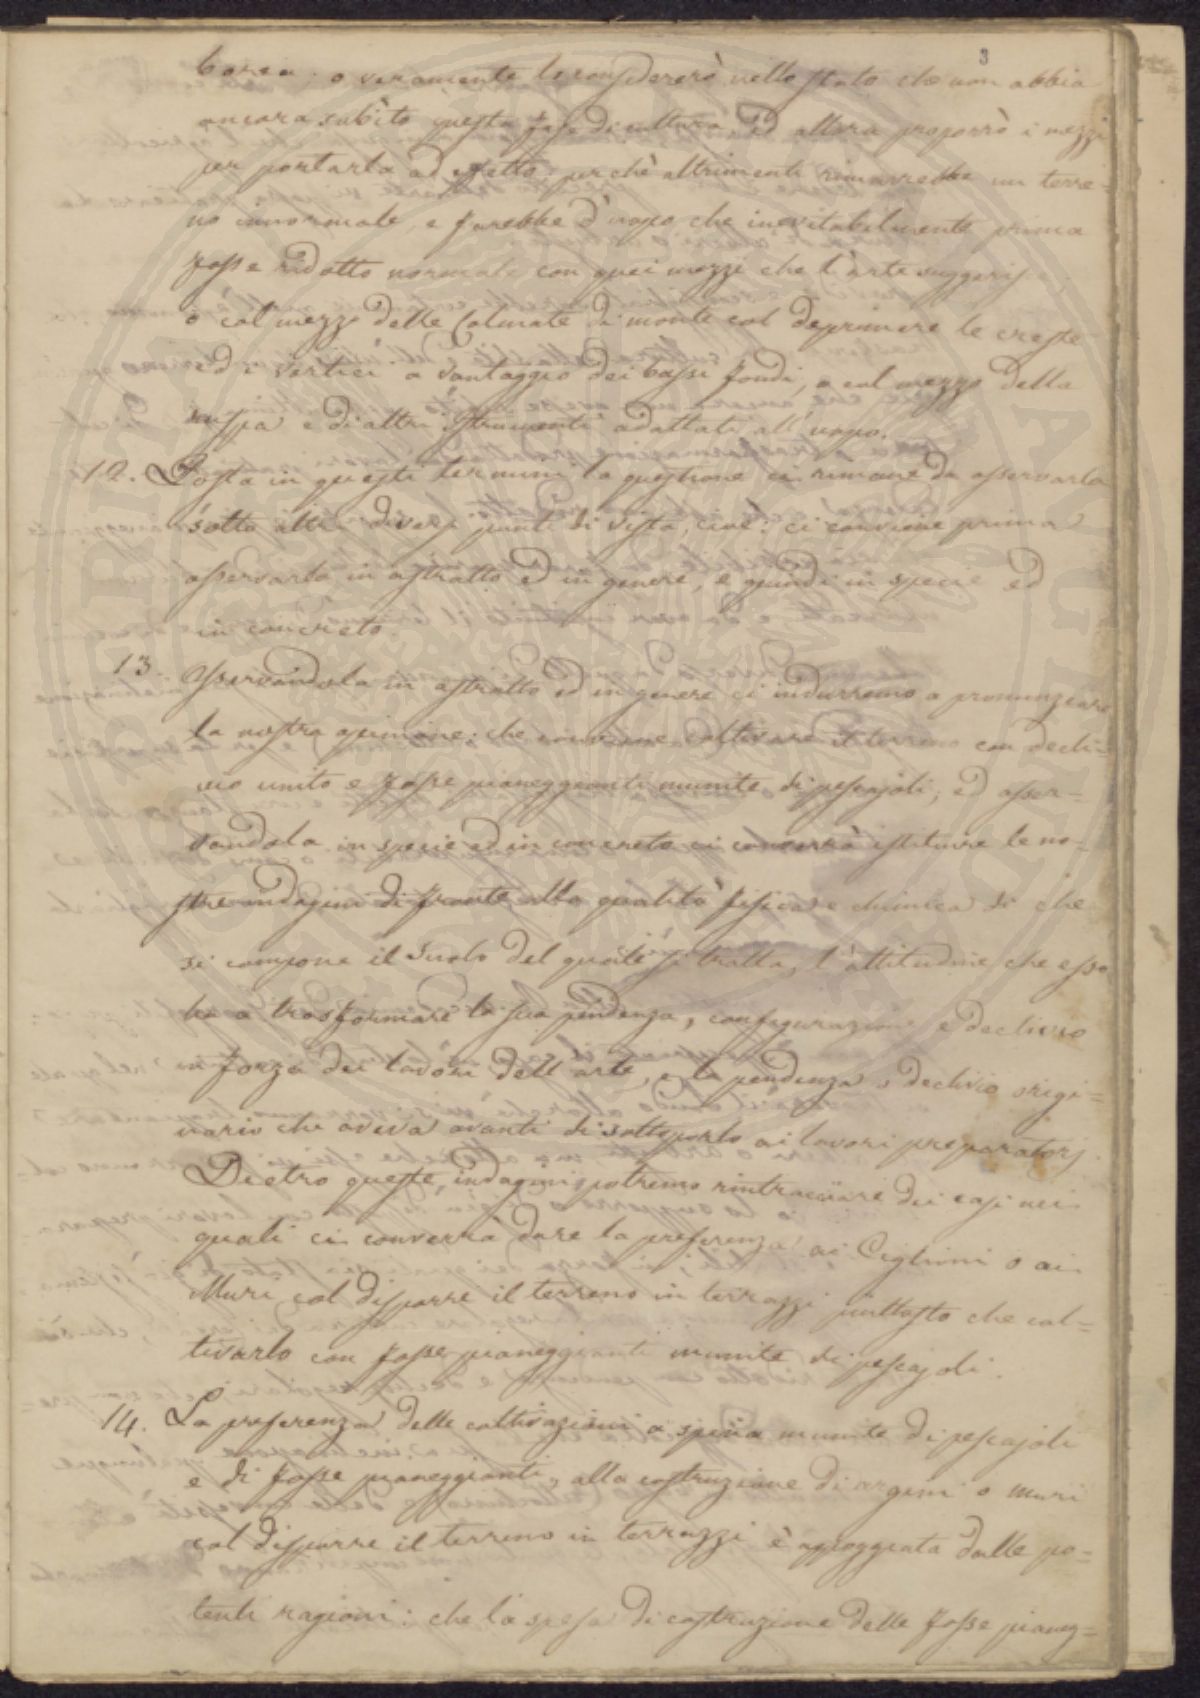 3
borea; o veramente lo considererò nello stato che non abbia
ancora subìto questa fase di cultura, ed allora proporrò i mezzi
per portarla ad effetto: perchè altrimenti rimarrebbe un terre-
no innormale, e farebbe d'uopo che inevitabilmente prima
fosse ridotto normale con quei mezzi che l'arte suggerisce,
o col mezzo delle Colmate di monte col deprimere le creste
ed i vertici a vantaggio dei bassi fondi, o col mezzo della
ruspa e di altri Strumenti adattati all'uopo.
12. Posta in questi termini la questione ci rimane da osservarla
sotto altri diversi punti di vista, cioè: ci conviene prima
osservarla in astratto ed in genere, e quindi in specie ed
in concreto.
13. Osservandola in astratto ed in genere ci indurremo a pronunziare
la nostra opinione: che conviene coltivare il terreno con decli-
vio unito e fosse pianeggianti munite di pescajoli; ed osser-
vandola in specie ed in concreto ci converrà istituire le no-
stre indagini di fronte alla qualità fisica e chimica di che
si compone il suolo del quale si tratta, l'attitudine che esso
ha a trasformare la sua pendenza, configurazione e declivio
in forza dei lavori dell'arte, e la pendenza o declivio origi-
nario che aveva avanti di sottoporlo ai lavori preparatorj.
Dietro queste indagini potremo rintracciare dei casi nei
quali ci converrà dare la preferenza ai Ciglioni o ai
Muri col disporre il terreno in terrazzi piuttosto che col-
tivarlo con fosse pianeggianti munite di pescajoli.
14. La preferenza delle coltivazioni a spina munite di pescajoli
e di fosse pianeggianti, alla costruzione di argini o muri
col disporre il terreno in terrazzi è appoggiata dalle po-
tenti ragioni: che la spesa di costruzione delle fosse pianeg-